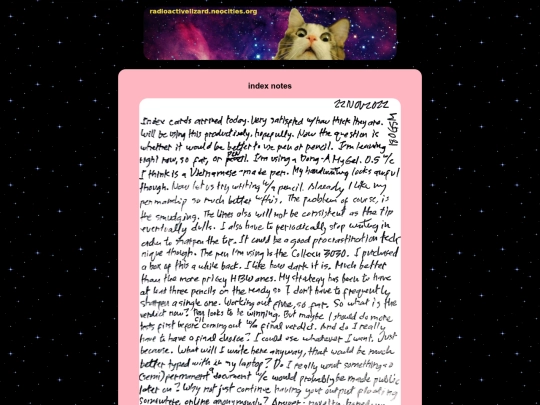 radioactivelizard.neocities.org
index notes
22NOV2022
Index cards arrived today. Very satisfied w/how thick they are.
Will be using this productively, hopefully. Now the question is
whether it would be better to use pen or pencil. I'm leaning
right now, so far, or pen. I'm using a Dong-A MyGel. 0.5 w/c
I think is a Vietnamese-made pen. My handwriting looks awful
though. Now let us try writing w/a pencil. Already I like my
penmanship so much better w/this. The problem of course, is
the smudging. The lines also will not be consistent as the tip
eventually dulls. I also have to periodically stop writing in
order to sharpen the tip. It could be a good procrastination tech
nique though. The pen I'm using is the Colleen 3030. I purchased
a box of this a while back. I like how dark it is. Much better
than the more pricey HB ones. My strategy has been to have
at least three pencils on the ready so I don't have to frequently
sharpen a single one. Working out fine, so far. So what is the
verdict now? looks to be winning. But maybe I should do more
tests first before coming out w/a final verdict. And do I really
have to have a final choice? I could use whatever I want. Just
because. What will I write here anyway, that would be much
better typed w/ my laptop? Do I really want something a
(semi)permanent document w/c would probably be made public
later on? Why not just continue having your output
somewhere online anonymously?